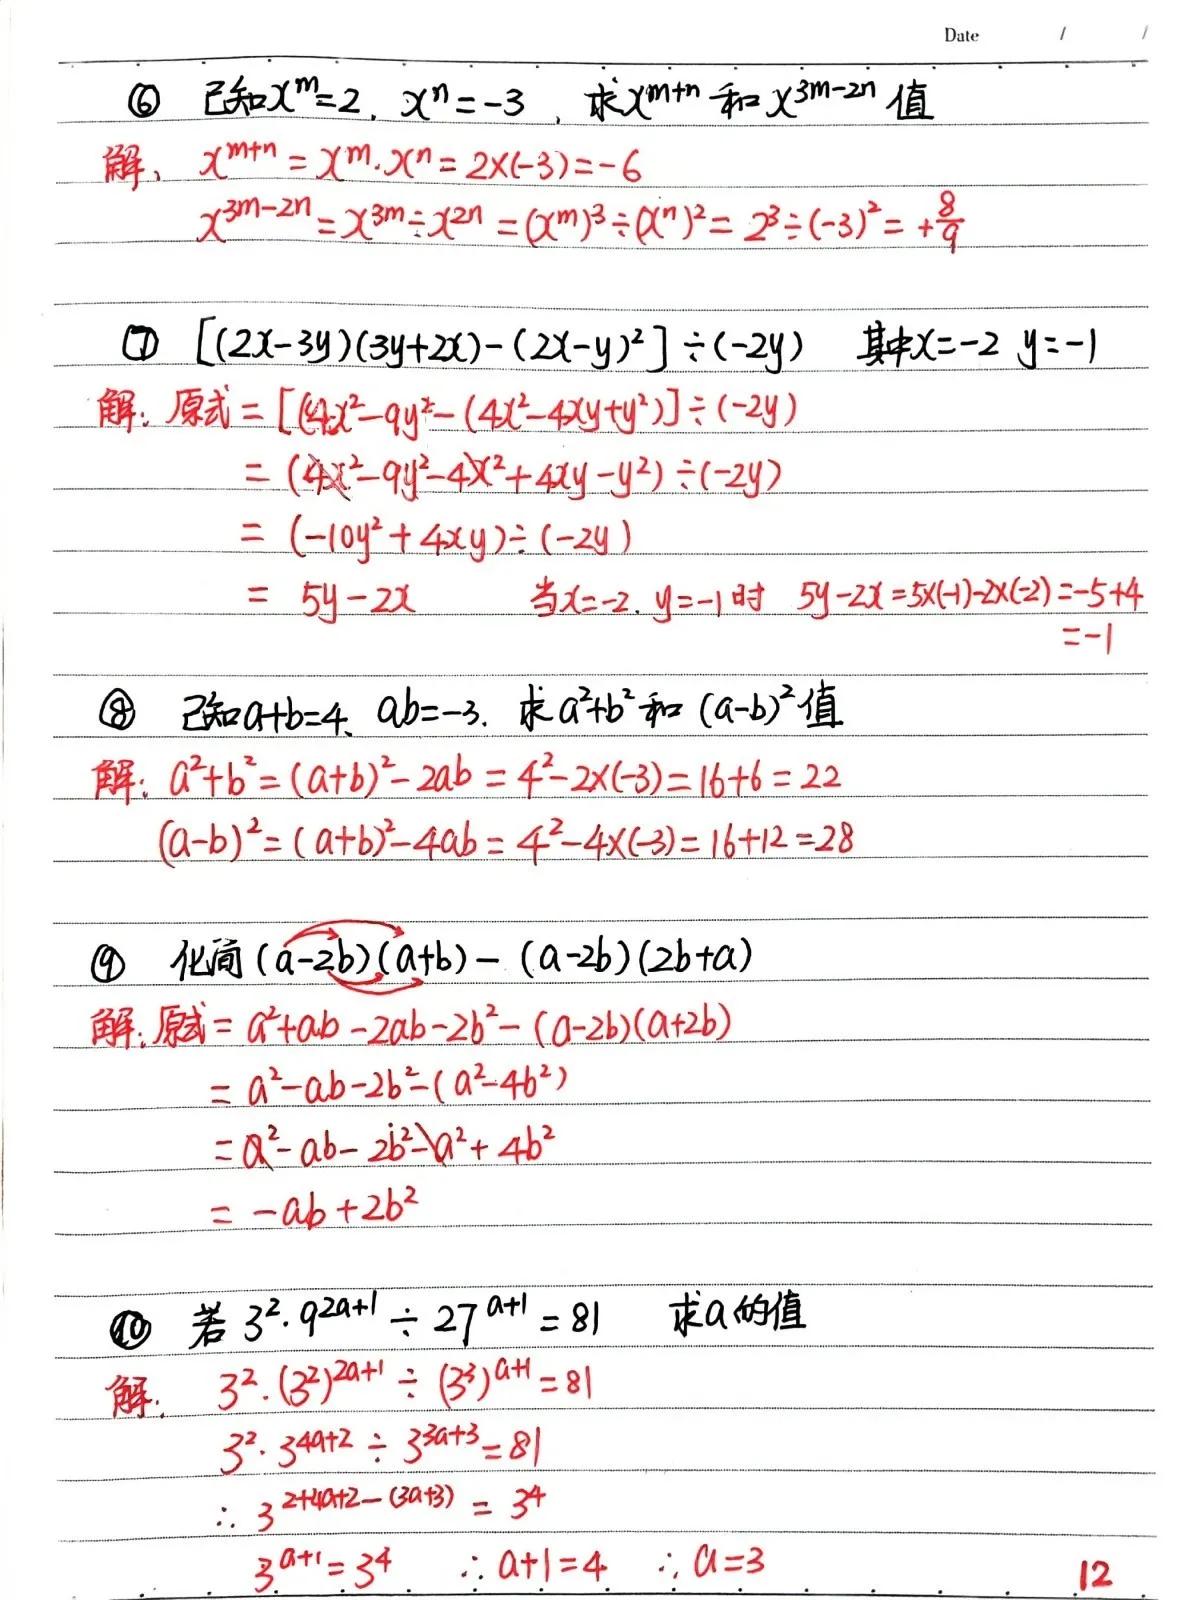 Date / /
⑥ 已知x^m=2, x^n=-3, 求x^{m+n}和x^{3m-2n}值
解、 x^{m+n}=x^m·x^n=2×(-3)=-6
x^{3m-2n}=x^{3m}÷x^{2n}=(x^m)^3÷(x^n)^2=2^3÷(-3)^2=+\frac{8}{9}
⑦ [(2x-3y)(3y+2x)-(2x-y)²]÷(-2y) 其中x=-2 y=-1
解: 原式=[(4x²-9y²-(4x²-4xy+y²)]÷(-2y)
=(4x²-9y²-4x²+4xy-y²)÷(-2y)
=(-10y²+4xy)÷(-2y)
= 5y-2x 当x=-2. y=-1时 5y-2x=5×(-1)-2×(-2)=-5+4
=-1
⑧ 已知a+b=4、ab=-3. 求a²+b²和(a-b)²值
解: a²+b²=(a+b)²-2ab=4²-2×(-3)=16+6=22
(a-b)²=(a+b)²-4ab=4²-4×(-3)=16+12=28
⑨ 化简(a-2b)(a+b)-(a-2b)(2b+a)
解: 原式=a²+ab-2ab-2b²-(a-2b)(a+2b)
=a²-ab-2b²-(a²-4b²)
=a²-ab-2b²-a²+4b²
=-ab+2b²
⑩ 若3²·9^{2a+1}÷27^{a+1}=81 求a的值
解: 3²·(3²)^{2a+1}÷(3³)^{a+1}=81
3²·3^{4a+2}÷3^{3a+3}=81
∴3^{2+4a+2-(3a+3)}=3⁴
3^{a+1}=3⁴ ∴a+1=4 ∴a=3
12